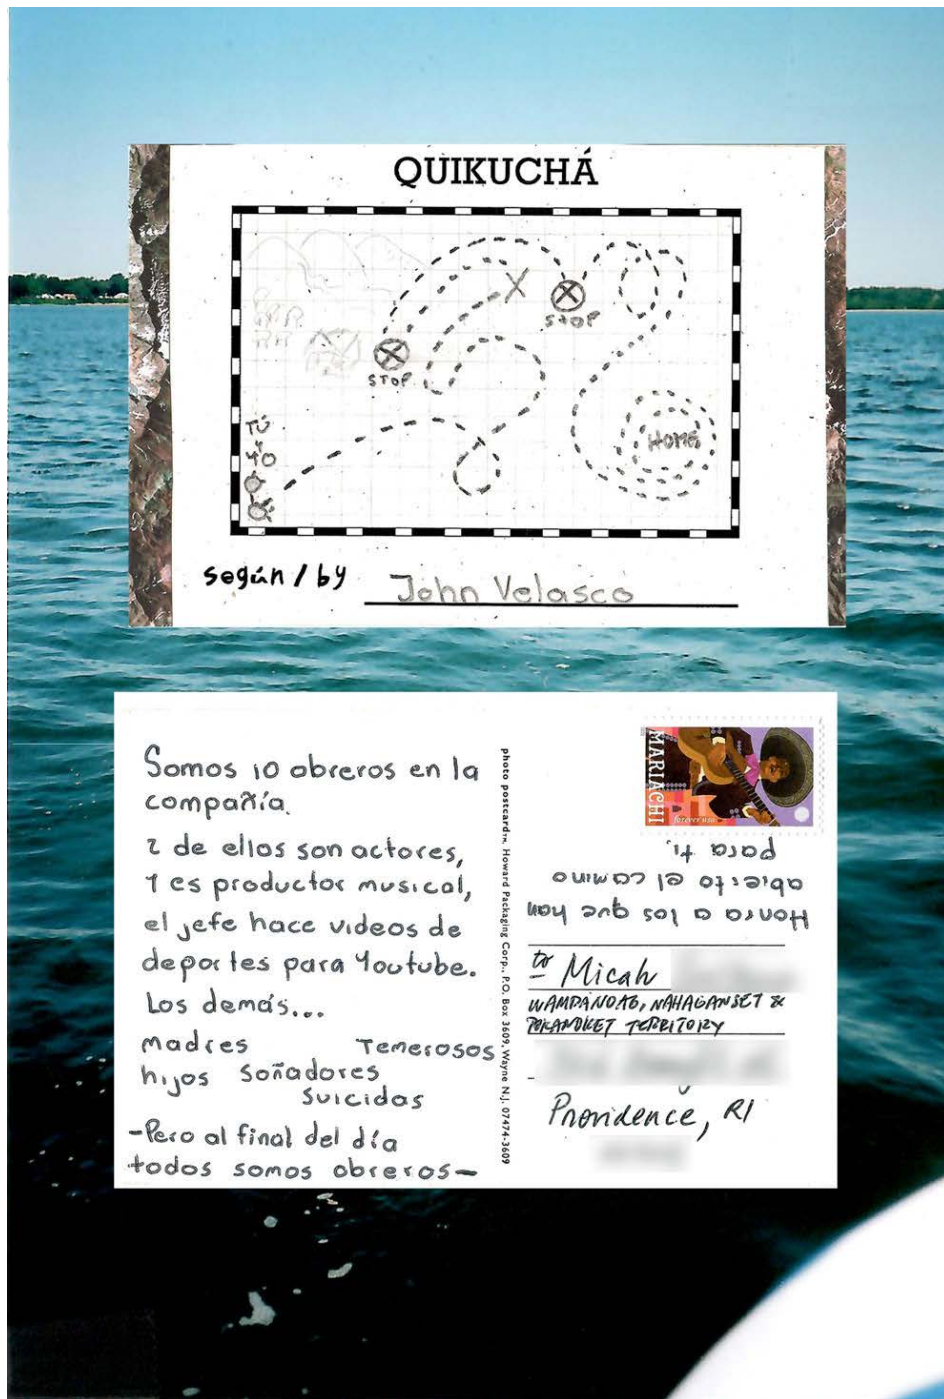 QUIKUCHÁ
STOP
STOP
TÚ
Y
YO
HOME
según / by John Velasco
Somos 10 obreros en la
compañía.
2 de ellos son actores,
1 es productor musical,
el jefe hace videos de
deportes para Youtube.
Los demás...
madres Temerosos
hijos Soñadores
Suicidas
-Pero al final del día
todos somos obreros-
photo postcard™, Howard Packaging Corp., P.O. Box 3609, Wayne N.J. 07474-3609
MARIACHI
forever usa
Honra a los que han
abierto el camino
para ti.
to Micah
WAMPANOAG, NAHAGANSET &
POKANOKET TERRITORY
Providence, RI